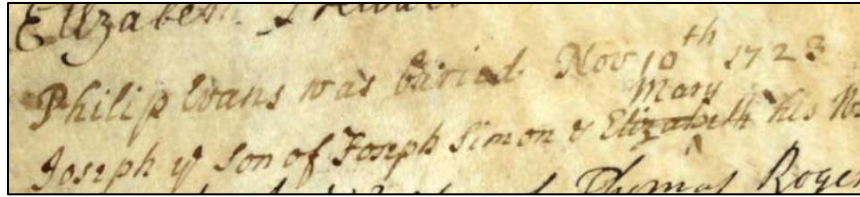 Elizabeth
Philip Evans was buried Nov 10th 1723
Mary
Joseph ye son of Joseph Simon & Elizabeth his
Thomas Roger